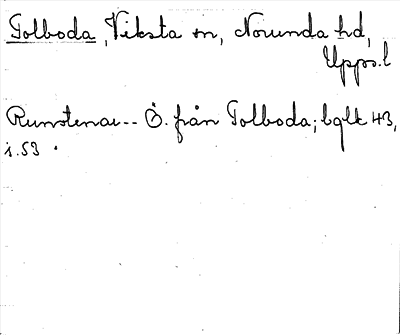 Tolboda, Viksta sn, Norunda hd,
Upps.l
Runstenar-- Ö. från Tolboda; bglt 43,
s.53.